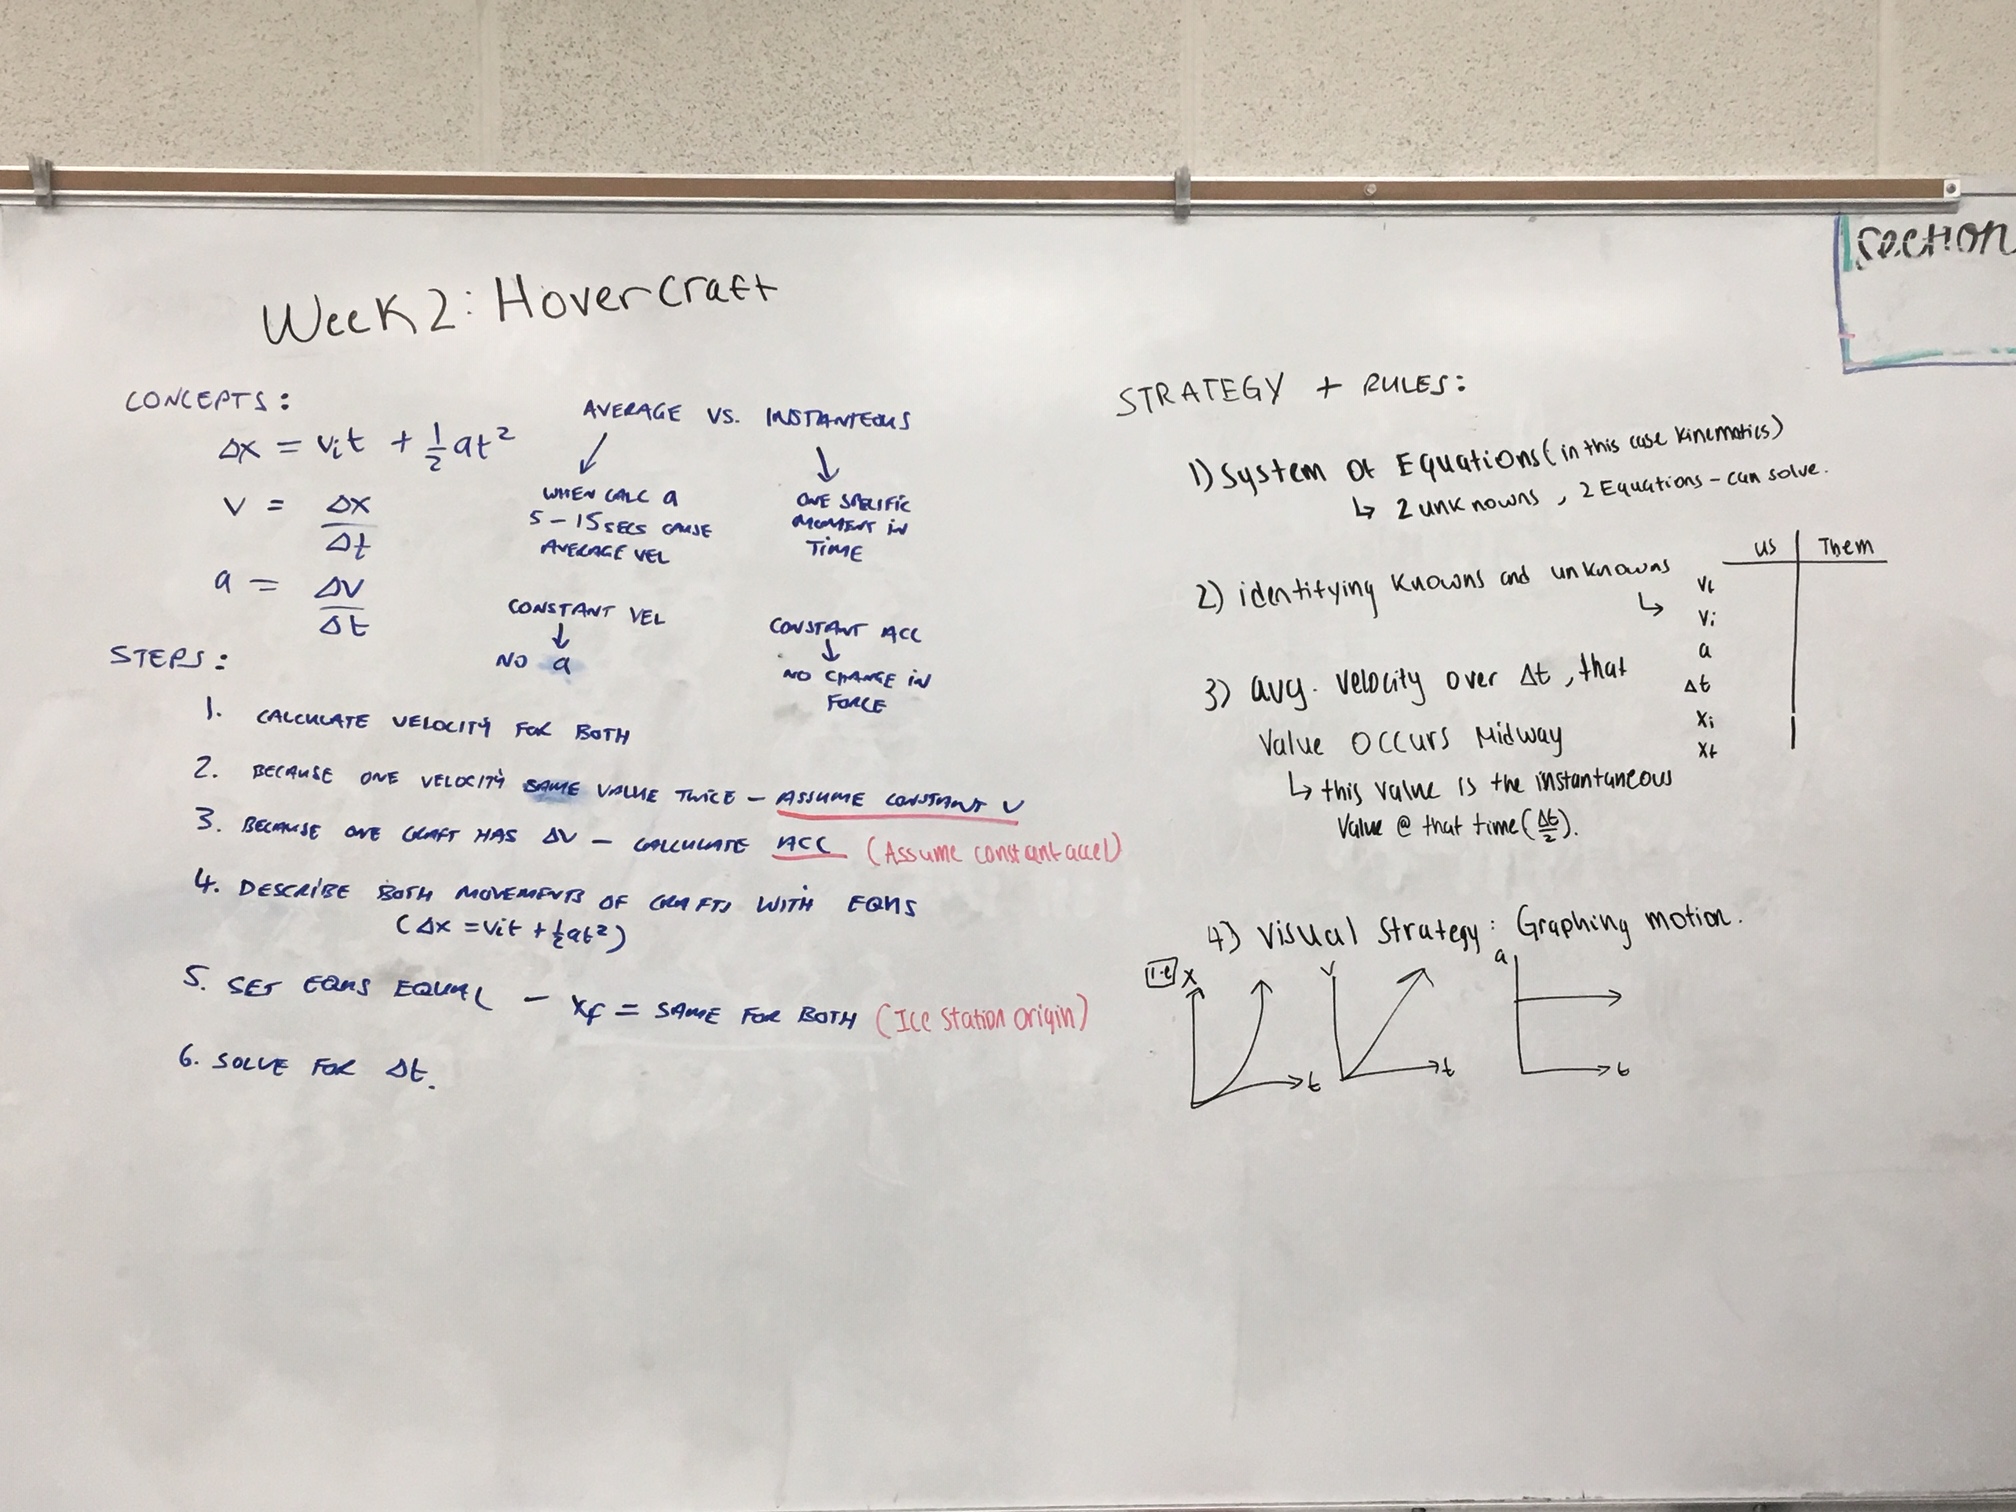 section
Week 2: Hovercraft
CONCEPTS:
Δx = vit + 1/2 at²
v = Δx/Δt
a = Δv/Δt
AVERAGE VS. INSTANTEOUS
↓ ↓
WHEN CALC a
5-15 SECS CAUSE
AVERAGE VEL
ONE SPECIFIC
MOMENT IN
TIME
CONSTANT VEL
↓
NO a
CONSTANT ACC
↓
NO CHANGE IN
FORCE
STEPS:
1. CALCULATE VELOCITY FOR BOTH
2. BECAUSE ONE VELOCITY SAME VALUE TWICE - ASSUME CONSTANT V
3. BECAUSE ONE CRAFT HAS ΔV - CALCULATE ACC (Assume constant accel)
4. DESCRIBE BOTH MOVEMENTS OF CRAFTS WITH EQNS
(Δx = vit + 1/2 at²)
5. SET EQNS EQUAL - xf = SAME FOR BOTH (Ice Station origin)
6. SOLVE FOR Δt.
STRATEGY + RULES:
1) System of Equations (in this case kinematics)
↳ 2 unknowns, 2 Equations - can solve.
2) identifying knowns and unknowns
↳
us | Them
Vf
Vi
a
Δt
Xi
Xf
3) avg. velocity over Δt, that
value occurs midway
↳ this value is the instantaneous
value @ that time (Δt/2).
4) visual strategy: Graphing motion.
i.e x t
v t
a t